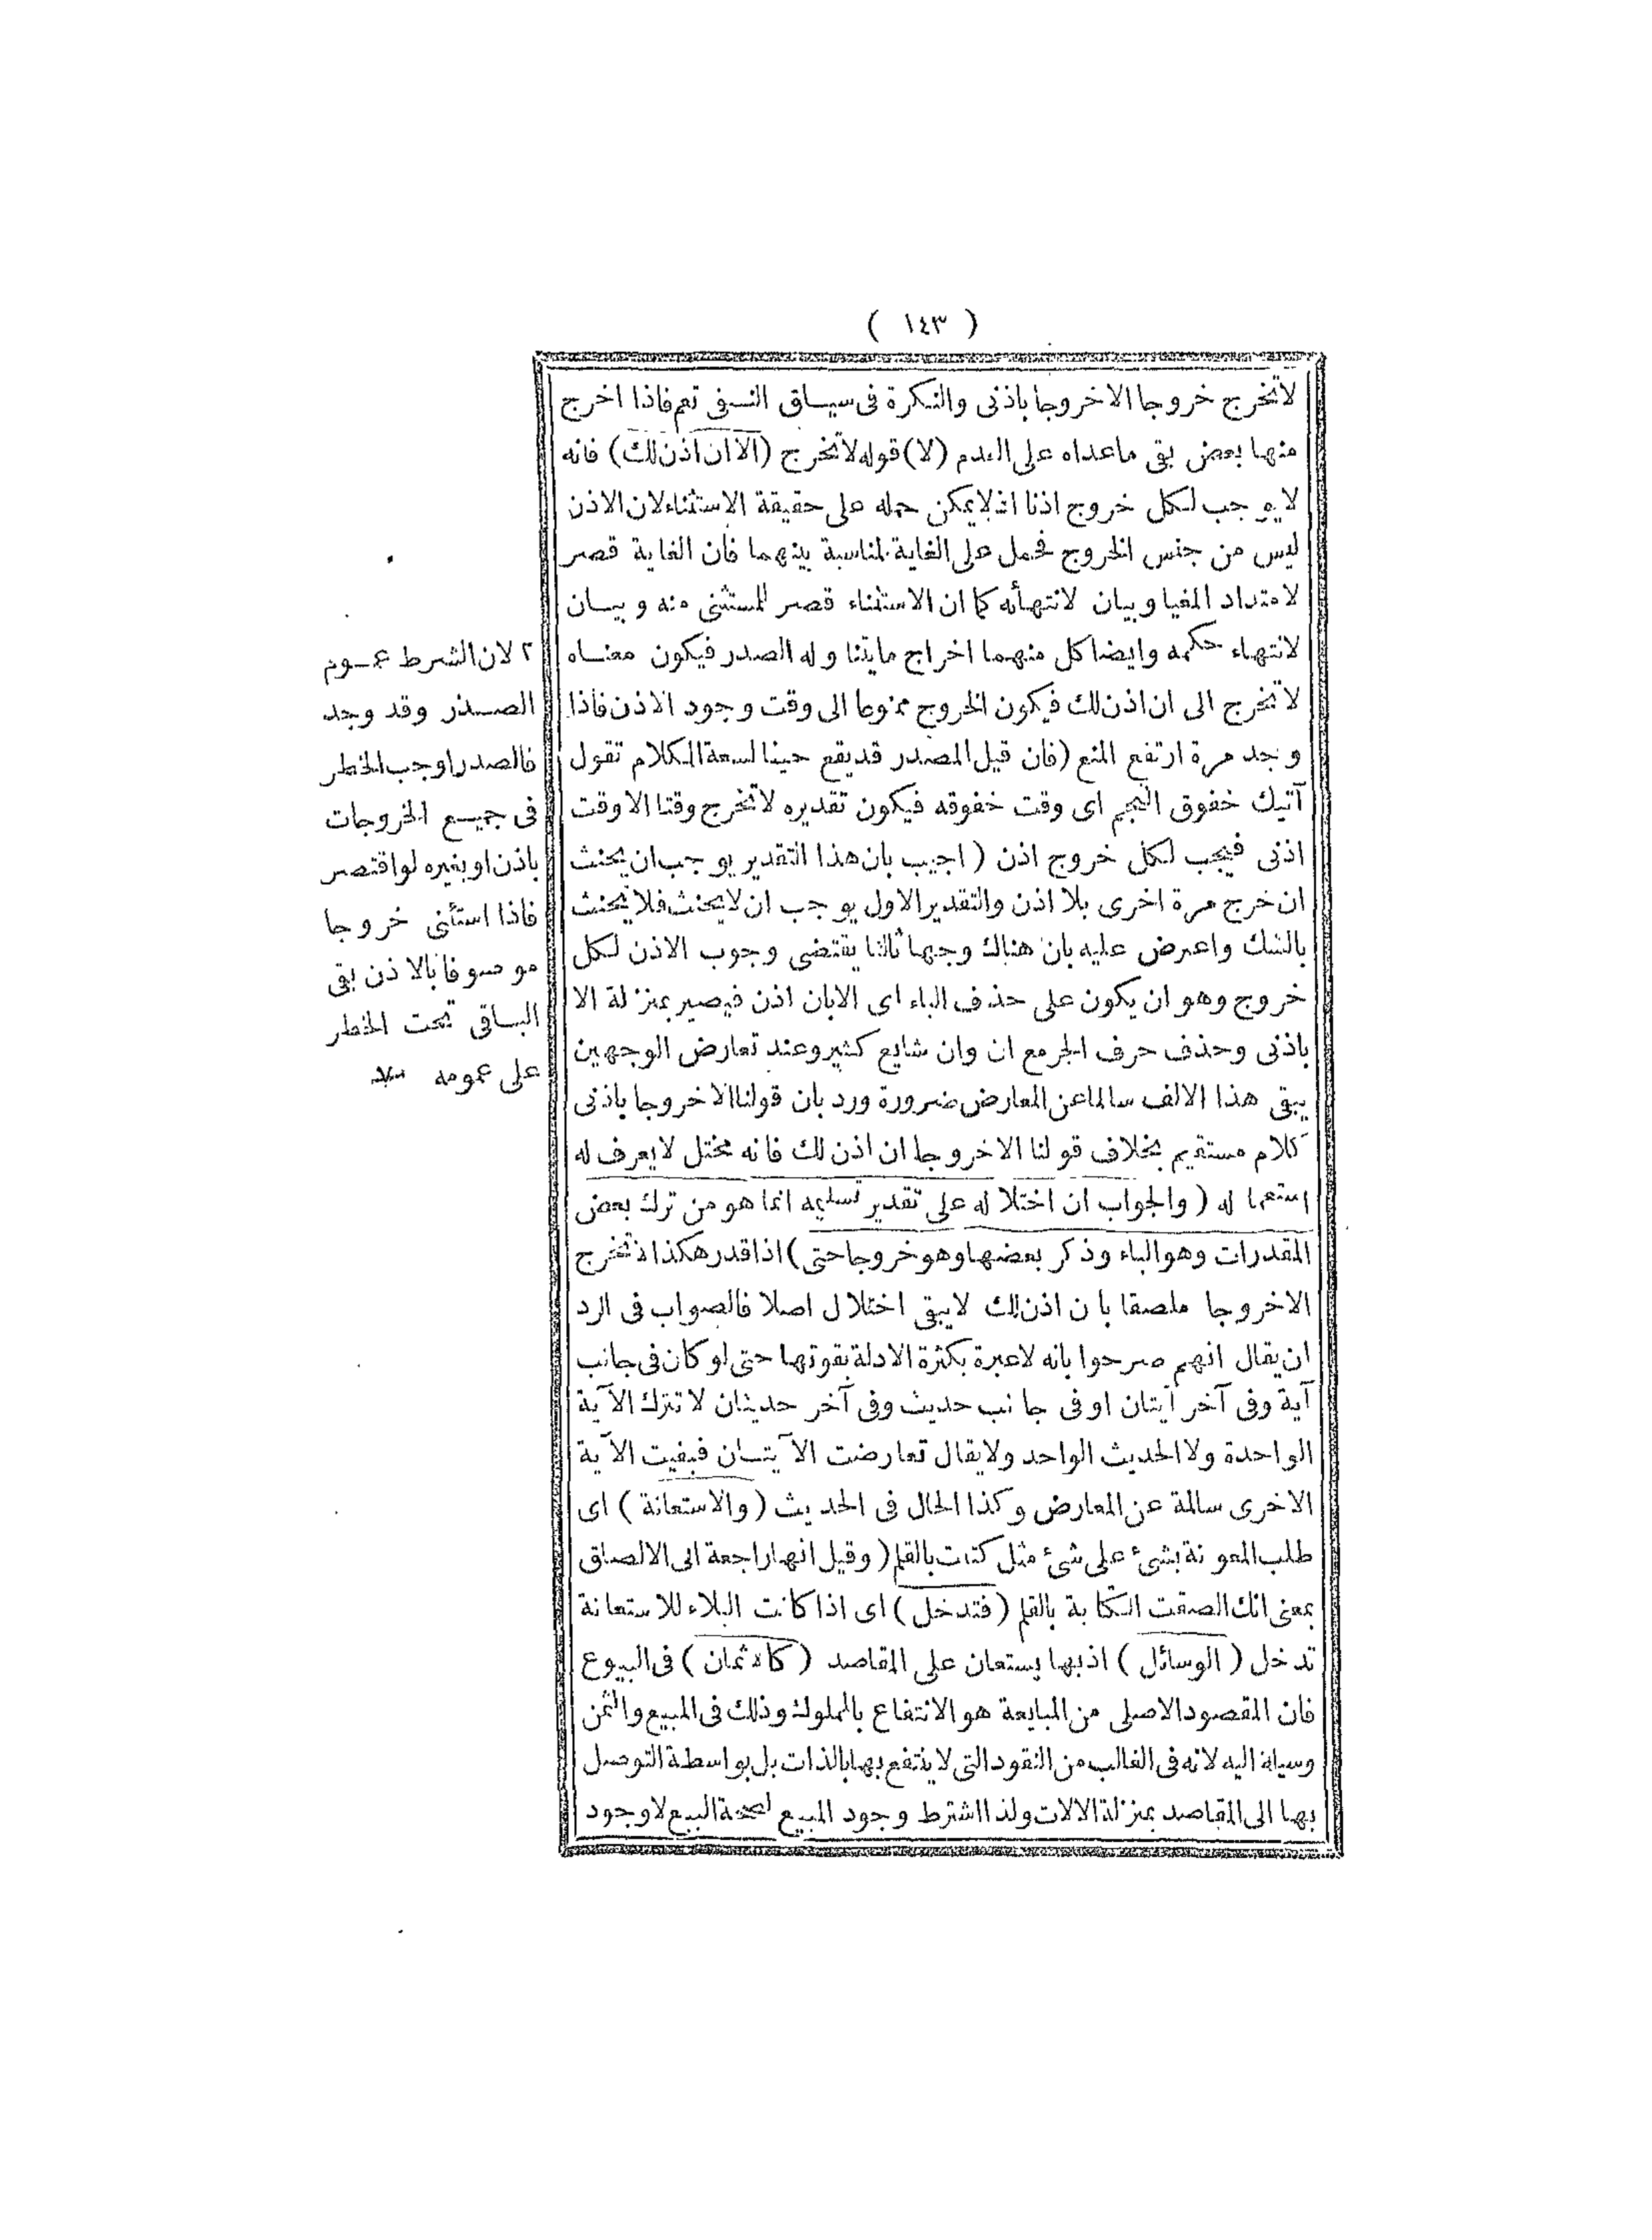 ( ١٤٣ )
لاتخرج خروجا الاخروجا باذنى والنكرة فى سياق النفى تعم فاذا اخرج
منها بعض بقى ماعداه على العدم (لا) قوله لاتخرج (الاان اذن لك) فانه
لايوجب لكل خروج اذنا اذلايمكن حمله على حقيقة الاستثناء لان الاذن
ليس من جنس الخروج فحمل على الغاية لمناسبة بينهما فان الغاية قصر
لامتداد المغيا وبيان لانتهأئه كما ان الاستثناء قصر للمستثنى منه وبيان
لانتهاء حكمه وايضا كل منهما اخراج مايتنا وله الصدر فيكون معناه
لاتخرج الى ان اذن لك فيكون الخروج ممنوعا الى وقت وجود الاذن فاذا
وجد مرة ارتفع المنع (فان قيل المصدر قديقع حينا لسعة الكلام تقول
آتيك خفوق النجم اى وقت خفوقه فيكون تقديره لاتخرج وقتا الاوقت
اذنى فيجب لكل خروج اذن ( اجيب بان هذا التقدير يوجب ان يحنث
ان خرج مرة اخرى بلا اذن والتقدير الاول يوجب ان لايحنث فلايحنث
بالشك واعترض عليه بان هناك وجها ثالثا يقتضى وجوب الاذن لكل
خروج وهو ان يكون على حذف الباء اى الابان اذن فيصير بمنزلة الا
باذنى وحذف حرف الجر مع ان وان شايع كثير وعند تعارض الوجهين
يبقى هذا الالف سالما عن المعارض ضرورة ورد بان قولنا الاخروجا باذنى
كلام مستقيم بخلاف قولنا الاخروجا ان اذن لك فانه مختل لايعرف له
استعما له ( والجواب ان اختلا له على تقدير تسليمه انما هو من ترك بعض
المقدرات وهو الباء وذكر بعضها وهو خروجا حتى) اذا قدر هكذا لاتخرج
الاخروجا ملصقا بان اذن لك لايبقى اختلال اصلا فالصواب فى الرد
ان يقال انهم صرحوا بانه لاعبرة بكثرة الادلة بقوتها حتى لو كان فى جانب
آية وفى آخر آيتان او فى جانب حديث وفى آخر حديثان لاتترك الآية
الواحدة ولا الحديث الواحد ولايقال تعارضت الآيتان فبقيت الآية
الاخرى سالمة عن المعارض وكذا الحال فى الحديث ( والاستعانة ) اى
طلب المعونة بشئ على شئ مثل كتبت بالقلم ( وقيل انها راجعة الى الالصاق
بمعنى انك الصقت الكتابة بالقلم ( فتدخل ) اى اذا كانت الباء للاستعانة
تدخل ( الوسائل ) اذبها يستعان على المقاصد ( كالاثمان ) فى البيوع
فان المقصود الاصلى من المبايعة هو الانتفاع بالمملوك وذلك فى المبيع والثمن
وسيلة اليه لانه فى الغالب من النقود التى لاينتفع بها بالذات بل بواسطة التوصل
بها الى المقاصد بمنزلة الالات ولذا اشترط وجود المبيع لصحة البيع لاوجود
٢ لان الشرط عموم
الصدر وقد وجد
فالصدر اوجب الحظر
فى جميع الخروجات
باذن او بغيره لو اقتصر
فاذا استثنى خروجا
موصوفا بالاذن بقى
الباقى تحت الحظر
على عمومه